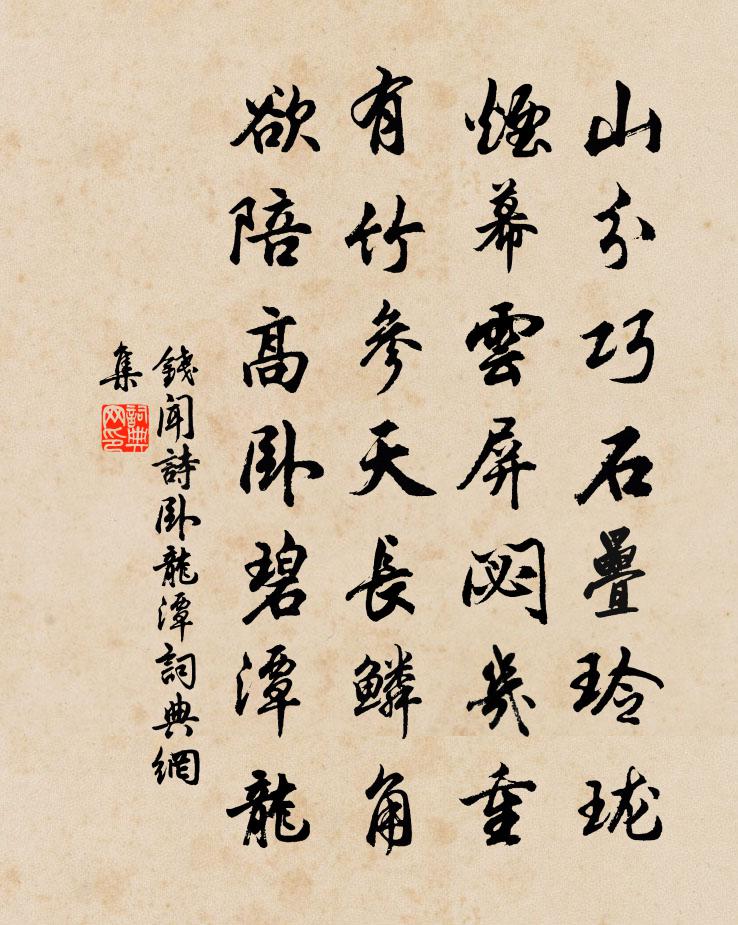 山分巧石疊玲珑
煙幕雲屏閟幾重
有竹參天長鱗角
欲陪高卧碧潭龍
錢聞詩卧龍潭詞典網
集
詞典网印